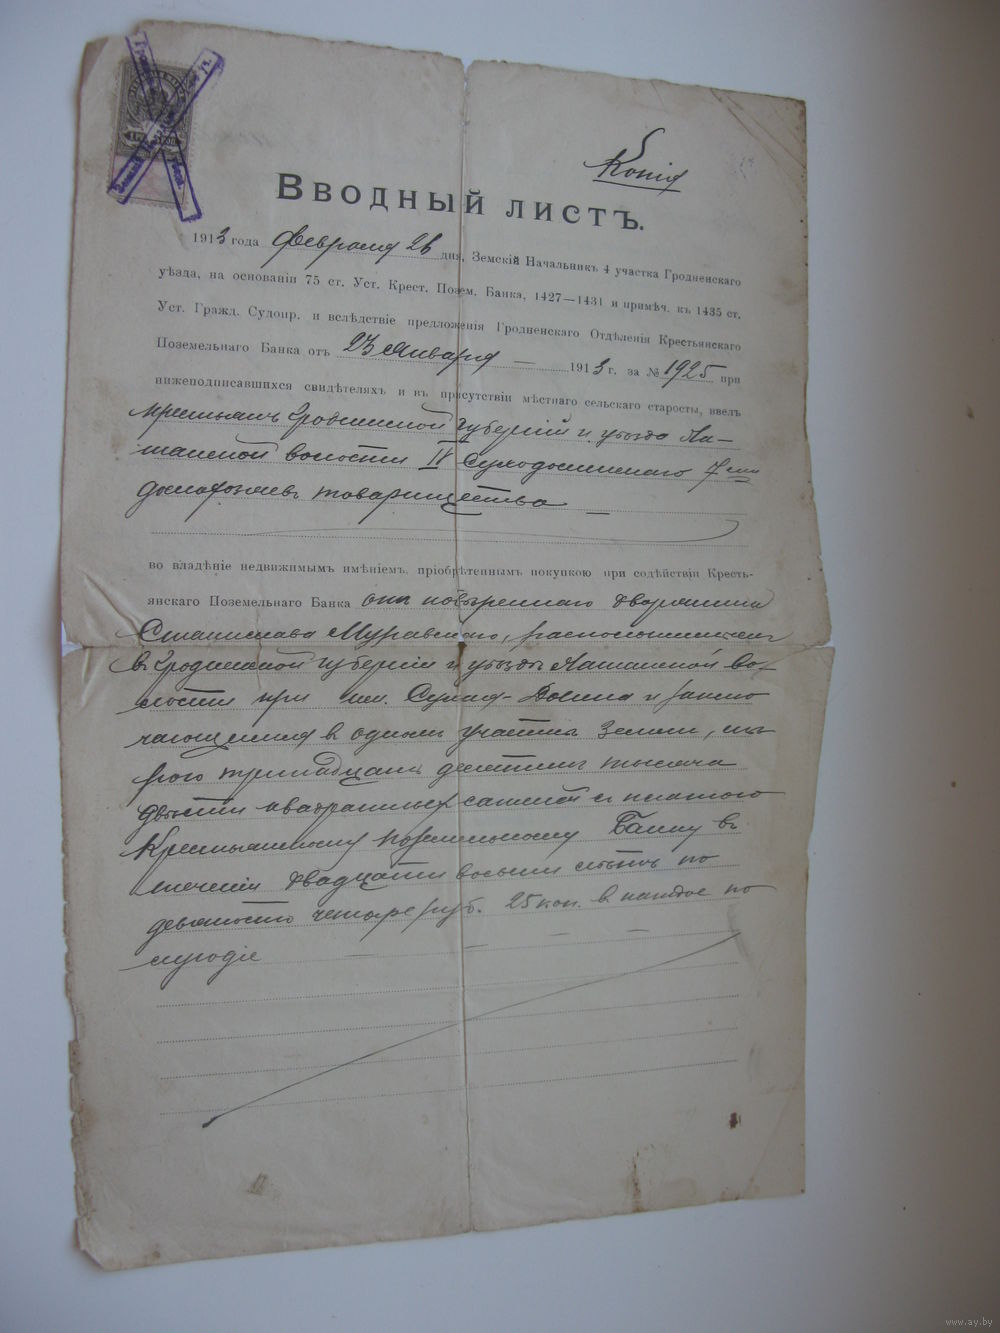 Копія
Вводный листъ.
1913 года Февраля 26 дня, Земскій Начальникъ 4 участка Гродненскаго
уѣзда, на основаніи 75 ст. Уст. Крест. Позем. Банка, 1427—1431 и примѣч. къ 1435 ст.
Уст. Гражд. Судопр. и вслѣдствіе предложенія Гродненскаго Отдѣленія Крестьянскаго
Поземельнаго Банка отъ 23 Января — 1913 г. за № 1925 при
нижеподписавшихся свидѣтеляхъ и въ присутствіи мѣстнаго сельскаго старосты, ввелъ
крестьянъ Гродненской губерніи и уѣзда Ла-
шанской волости IV Суходолинскаго 7ми
домохозяев. товарищества —
во владѣніе недвижимымъ имѣніемъ, пріобрѣтеннымъ покупкою при содѣйствіи Кресть-
янскаго Поземельнаго Банка отъ дворянина
Станислава Муравскаго, расположеннымъ
въ Гродненской губерніи и уѣздѣ Лашанской во-
лости при им. Сухая-Долина и заклю
чающимся в одномъ участкѣ земли, мѣ
рою тринадцать десятинъ тысяча
двѣсти квадратныхъ саженей съ платою
Крестьянскому Поземельному Банку въ
теченіи двадцати восьми лѣтъ по
девяносто четыре руб. 25 коп. в каждое по
лугодіе
www.ay.by